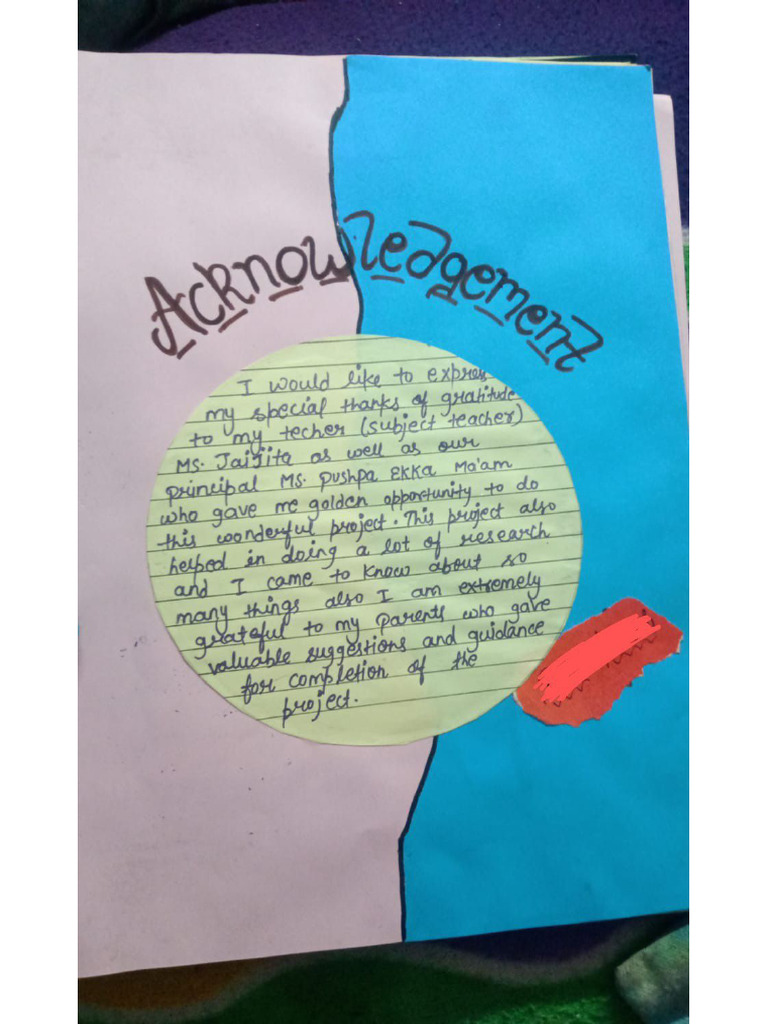 Acknowledgement
I would like to expres
my special thanks of gratitude
to my techer (subject teacher)
Ms. Jaijita as well as our
principal Ms. Pushpa EKKA Ma'am
who gave me golden opportunity to do
this wonderful project. This project also
helped in doing a lot of research
and I came to know about so
many things also I am extremely
grateful to my parents who gave
valuable suggestions and guidance
for completion of the
project.